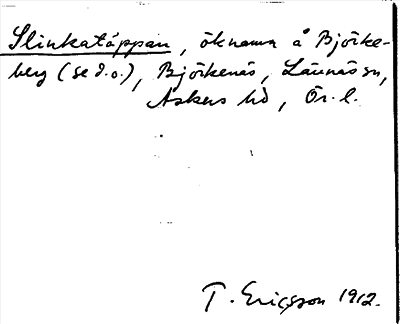 Slinkatäppan, öknamn å Björke-
berg (se d.o.), Björkenäs, Lännäs sn,
Askers hd, Ör. l.
T. Ericsson 1912.